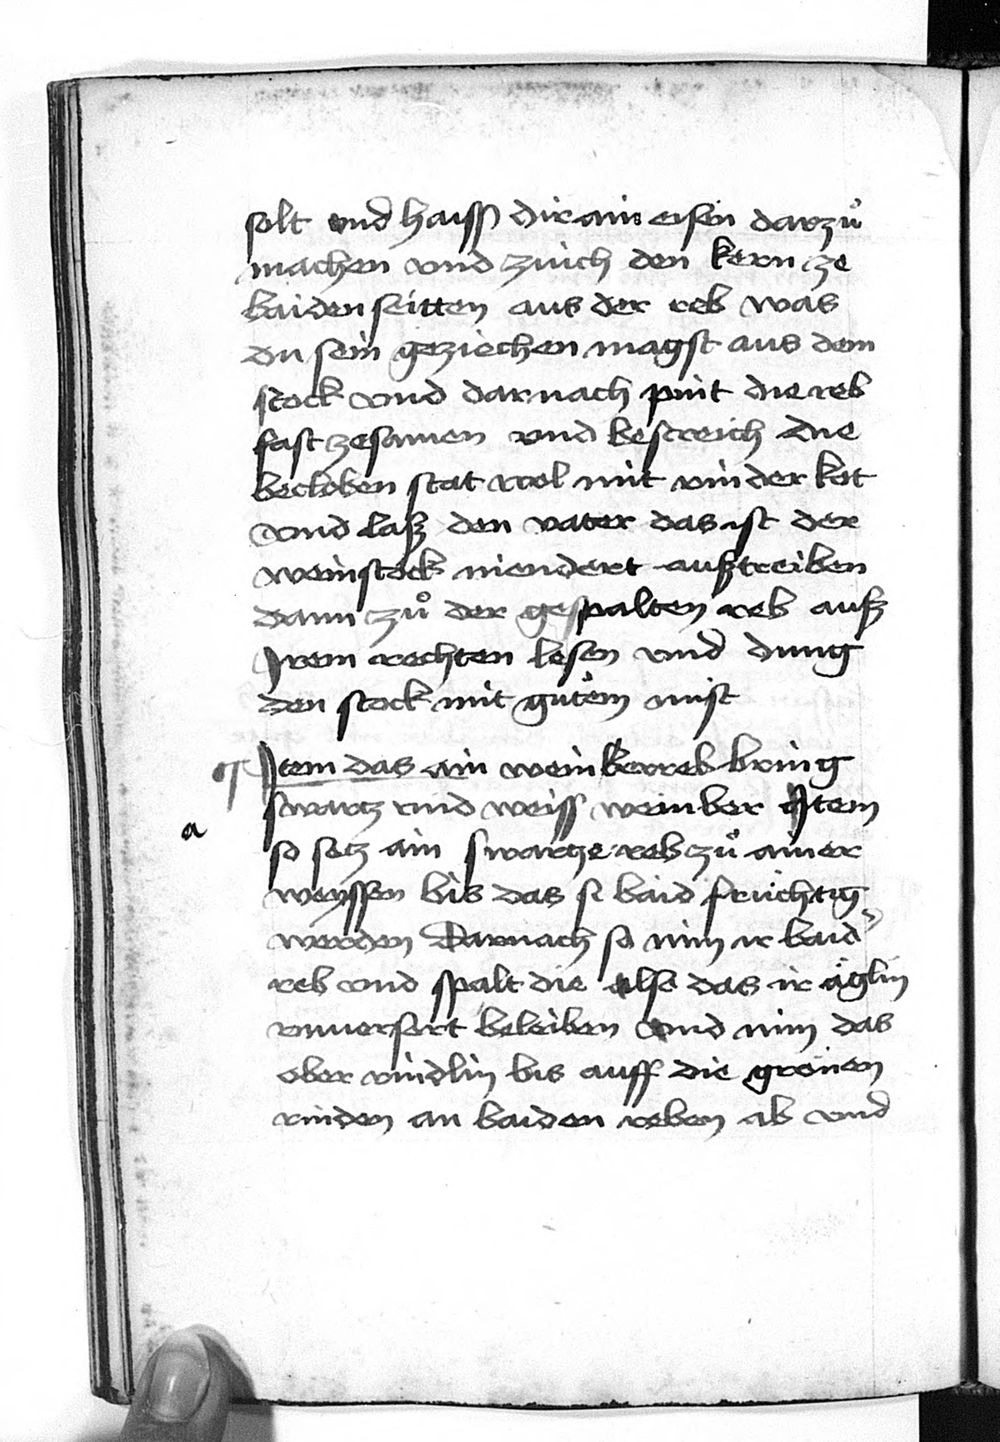 solt vnd haiss dir ain eisen darzů
machen vnd zuich den kern ze
baiden seitten aus der reb was
du sein geziechen magst aus dem
stock vnd darnach pint die reb
fast zesamen vnd bestreich die
becloben stat wol mit rinder kot
vnd laß den vater das ist der
weinstock niendert außtreiben
dann zů der gespalten reb auß
Irem rechten lesen vnd dung
den stock mit gutem mist
¶ Item das ain weinberreb bring
swartz vnd weiss weinber Item
a
so setz ain swartze reb zů ainer
weyssen bis das si baid fruchtig
werden Darnach so nim ir baid
reb vnd spalt die also das ir äglin
vnuersert beleiben vnd nim das
ober rindlin bis auff die grönen
rinden an baiden reben ab vnd